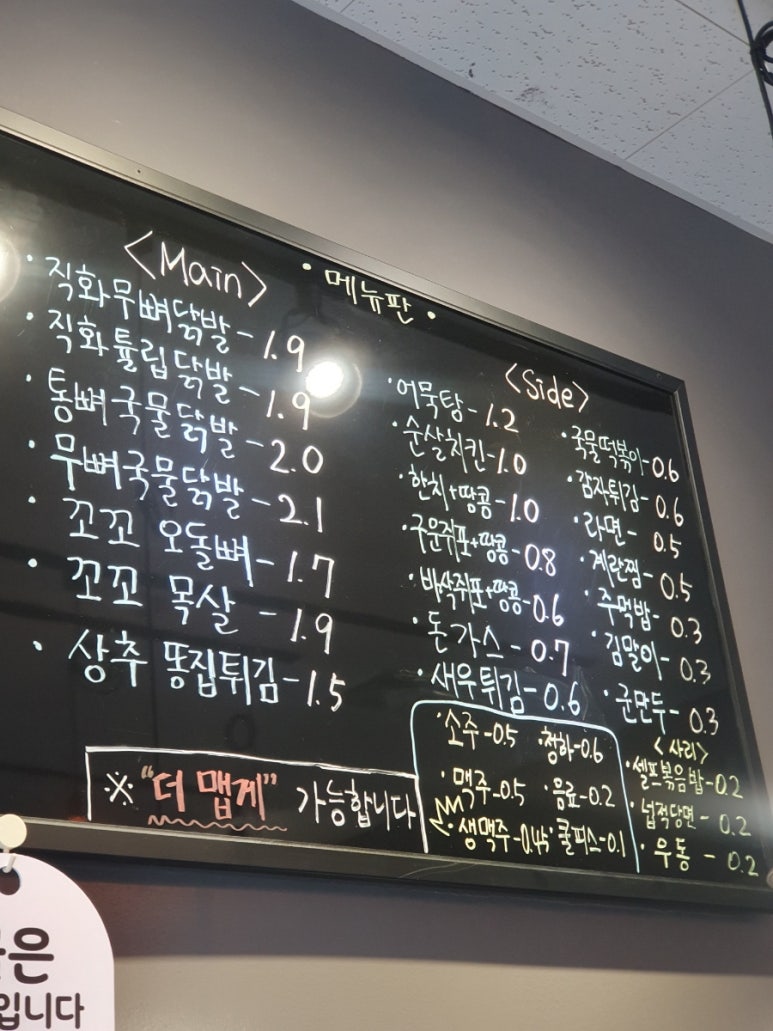 · 메뉴판 ·
<Main>
· 직화무뼈닭발 - 1.9
· 직화튤립닭발 - 1.9
· 통뼈국물닭발 - 2.0
· 무뼈국물닭발 - 2.1
· 꼬꼬 오돌뼈 - 1.7
· 꼬꼬 목살 - 1.9
· 상추 똥집튀김 - 1.5
※ "더 맵게" 가능합니다
<Side>
· 어묵탕 - 1.2
· 순살치킨 - 1.0
· 한치+땅콩 - 1.0
· 구운쥐포+땅콩 - 0.8
· 바삭쥐포+땅콩 - 0.6
· 돈가스 - 0.7
· 새우튀김 - 0.6
· 국물떡볶이 - 0.6
· 감자튀김 - 0.6
· 라면 - 0.5
· 계란찜 - 0.5
· 주먹밥 - 0.3
· 김말이 - 0.3
· 군만두 - 0.3
· 소주 - 0.5
· 청하 - 0.6
· 맥주 - 0.5
· 음료 - 0.2
· 생맥주 - 0.45
· 쿨피스 - 0.1
<사리>
· 셀프볶음밥 - 0.2
· 넙적당면 - 0.2
· 우동 - 0.2
은
입니다